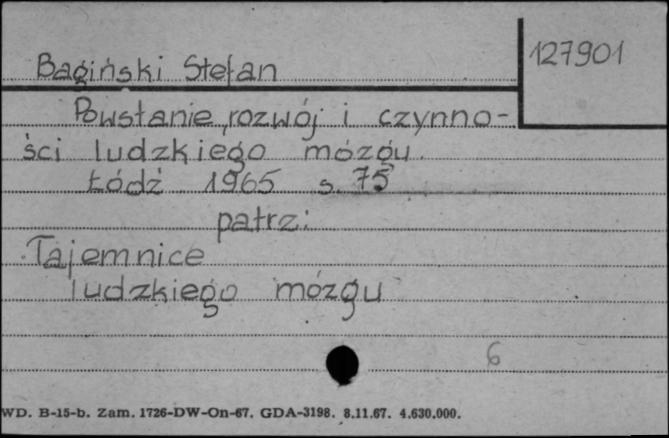 127901
Bagiński Stefan
Powstanie, rozwój i czynno-
ści ludzkiego mózgu.
Łódź 1965 s. 75
patrz:
Tajemnice
ludzkiego mózgu
6
WD. B-15-b. Zam. 1726-DW-On-67. GDA-3198. 8.11.67. 4.630.000.